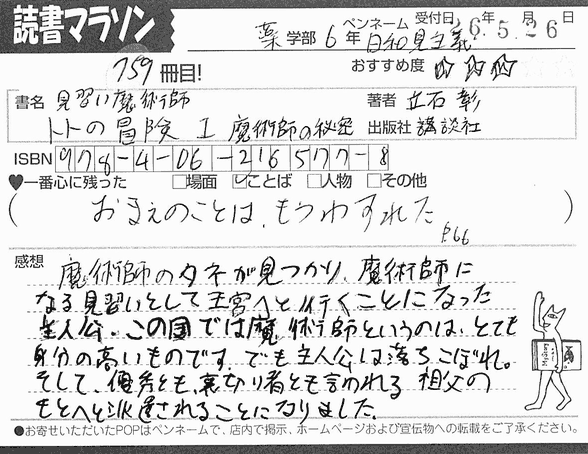 読書マラソン
薬学部 6年 ペンネーム 日和見主義 受付日 26年5月26日
759冊目! おすすめ度 ☆☆☆
書名 見習い魔術師 著者 立石 彰
トトの冒険 I 魔術師の秘密 出版社 講談社
ISBN 978-4-06-216577-8
♥一番心に残った □場面 ☑ことば □人物 □その他
(おまえのことは、もうわすれた P.66)
感想 魔術師のタネが見つかり、魔術師に
なる見習いとして王宮へと行くことになった
主人公。この国では魔術師というのは、とても
身分の高いものです。でも主人公は落ちこぼれ。
そして、優秀とも裏切り者とも言われる祖父の
もとへと派遣されることになりました。
●お寄せいただいたPOPはペンネームで、店内で掲示、ホームページおよび宣伝物への転載をご了承ください。